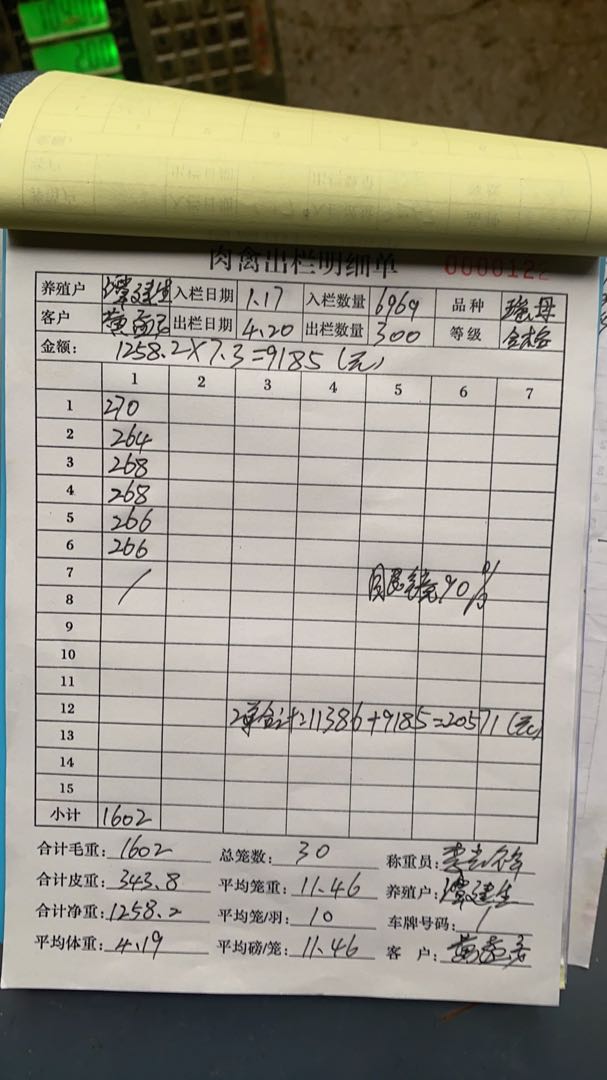 肉禽出栏明细单 0000122
养殖户 谭建生 入栏日期 1.17 入栏数量 6969 品种
客户 出栏日期 4.20 出栏数量 300 等级 合格
金额: 1258.2×7.3=9185(元)
1 2 3 4 5 6 7
1 270
2 264
3 268
4 268
5 266
6 266
7 /
8 90%
9
10
11
12 2单合计=11386+9185=20571(元)
13
14
15
小计 1602
合计毛重: 1602 总笼数: 30 称重员:
合计皮重: 343.8 平均笼重: 11.46 养殖户: 谭建生
合计净重: 1258.2 平均笼/羽: 10 车牌号码: /
平均体重: 4.19 平均磅/笼: 11.46 客户: